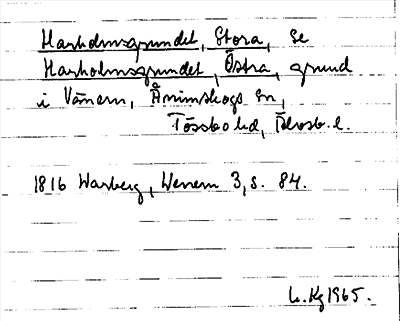 Harholmsgrundet, Stora, se
Harholmsgrundet, Östra, grund
i Vänern, Ånimskogs sn,
Tössbo hd, Älvsb. l.
1816 Warberg, Wenern 3, s. 84.
Kg 1965.